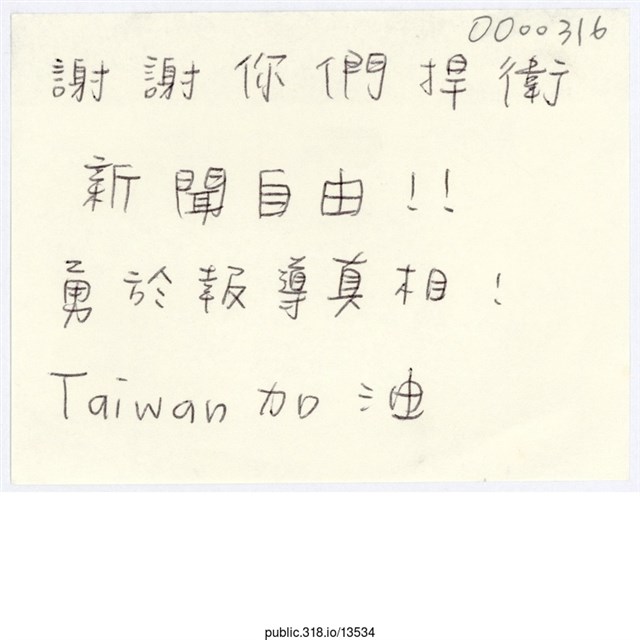 0000316
謝謝你們捍衛
新聞自由!!
勇於報導真相!
Taiwan 加油
public.318.io/13534